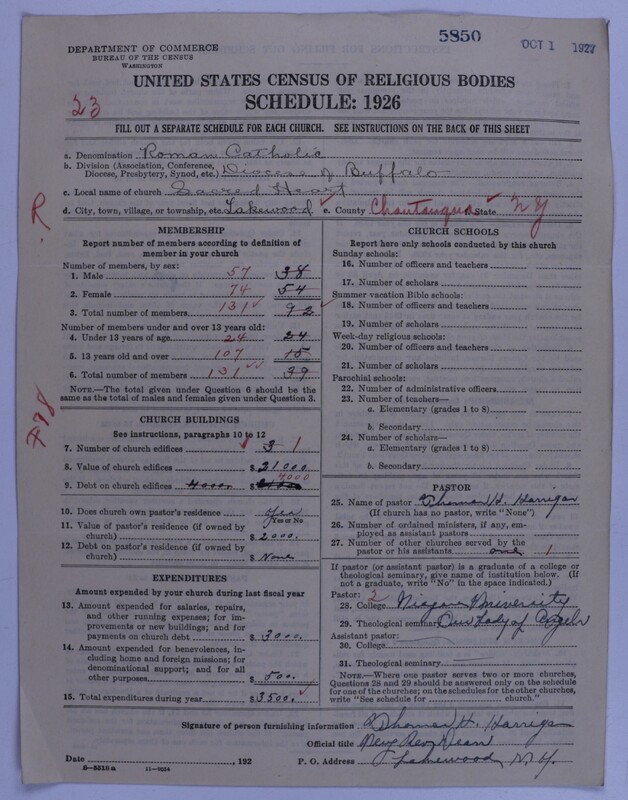 5850
OCT 1 1927
DEPARTMENT OF COMMERCE
BUREAU OF THE CENSUS
WASHINGTON
UNITED STATES CENSUS OF RELIGIOUS BODIES
SCHEDULE: 1926
23
FILL OUT A SEPARATE SCHEDULE FOR EACH CHURCH. SEE INSTRUCTIONS ON THE BACK OF THIS SHEET
a. Denomination Roman Catholic
b. Division (Association, Conference, Diocese of Buffalo
Diocese, Presbytery, Synod, etc.)
c. Local name of church Sacred Heart
d. City, town, village, or township, etc. Lakewood e. County Chautauqua State NY
R
798
MEMBERSHIP
Report number of members according to definition of
member in your church
Number of members, by sex:
1. Male 57 38
2. Female 74 54
3. Total number of members 131 92
Number of members under and over 13 years old:
4. Under 13 years of age 24 24
5. 13 years old and over 107 15
6. Total number of members 131 39
NOTE.—The total given under Question 6 should be the
same as the total of males and females given under Question 3.
CHURCH BUILDINGS
See instructions, paragraphs 10 to 12
7. Number of church edifices 3 1
8. Value of church edifices $ 21000
9. Debt on church edifices 4000. $ 4000
10. Does church own pastor's residence Yes
Yes or No
11. Value of pastor's residence (if owned by
church) $ 2000.
12. Debt on pastor's residence (if owned by
church) $ None
EXPENDITURES
Amount expended by your church during last fiscal year
13. Amount expended for salaries, repairs,
and other running expenses; for im-
provements or new buildings; and for
payments on church debt $ 3000.
14. Amount expended for benevolences, in-
cluding home and foreign missions; for
denominational support; and for all
other purposes $ 500.
15. Total expenditures during year $ 3500.
CHURCH SCHOOLS
Report here only schools conducted by this church
Sunday schools:
16. Number of officers and teachers
17. Number of scholars
Summer vacation Bible schools:
18. Number of officers and teachers
19. Number of scholars
Week-day religious schools:
20. Number of officers and teachers
21. Number of scholars
Parochial schools:
22. Number of administrative officers
23. Number of teachers—
a. Elementary (grades 1 to 8)
b. Secondary
24. Number of scholars—
a. Elementary (grades 1 to 8)
b. Secondary
PASTOR
25. Name of pastor Thomas H. Harrigan
(If church has no pastor, write "None")
26. Number of ordained ministers, if any, em-
ployed as assistant pastors
27. Number of other churches served by the
pastor or his assistants one 1
If pastor (or assistant pastor) is a graduate of a college or
theological seminary, give name of institution below. (If
not a graduate, write "No" in the space indicated.)
Pastor: 2
28. College Niagara University
29. Theological seminary Our Lady of Angels
Assistant pastor:
30. College
31. Theological seminary
NOTE.—Where one pastor serves two or more churches,
Questions 28 and 29 should be answered only on the schedule
for one of the churches; on the schedules for the other churches,
write "See schedule for church."
Signature of person furnishing information Thomas H. Harrigan
Official title Very Rev Dean
Date , 192 P. O. Address Lakewood N.Y.
8-5518a 11-9024